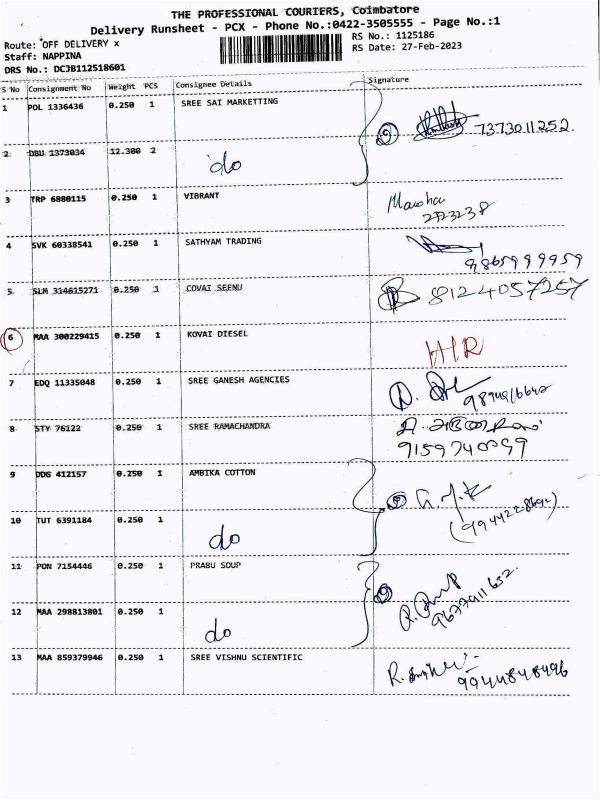 THE PROFESSIONAL COURIERS, Coimbatore
Delivery Runsheet - PCX - Phone No.:0422-3505555 - Page No.:1
Route: OFF DELIVERY x
RS No.: 1125186
Staff: NAPPINA
RS Date: 27-Feb-2023
DRS No.: DCJB112518601
S No Consignment No Weight PCS Consignee Details Signature
1 POL 1336436 0.250 1 SREE SAI MARKETTING
② 7373011252.
2 DBU 1373034 12.300 2 do
3 TRP 6880115 0.250 1 VIBRANT
4 SVK 60338541 0.250 1 SATHYAM TRADING
9865999959
5 SLM 314615271 0.250 1 COVAI SEENU 8124057257
6 MAA 300229415 0.250 1 KOVAI DIESEL
H/R
7 EDQ 11335048 0.250 1 SREE GANESH AGENCIES
8 STY 76122 0.250 1 SREE RAMACHANDRA
9159740099
9 DDG 412157 0.250 1 AMBIKA COTTON
②
10 TUT 6391184 0.250 1 do
11 PON 7154446 0.250 1 PRABU SOUP
②
9677911632.
12 MAA 298813801 0.250 1 do
13 MAA 859379946 0.250 1 SREE VISHNU SCIENTIFIC
9944848496